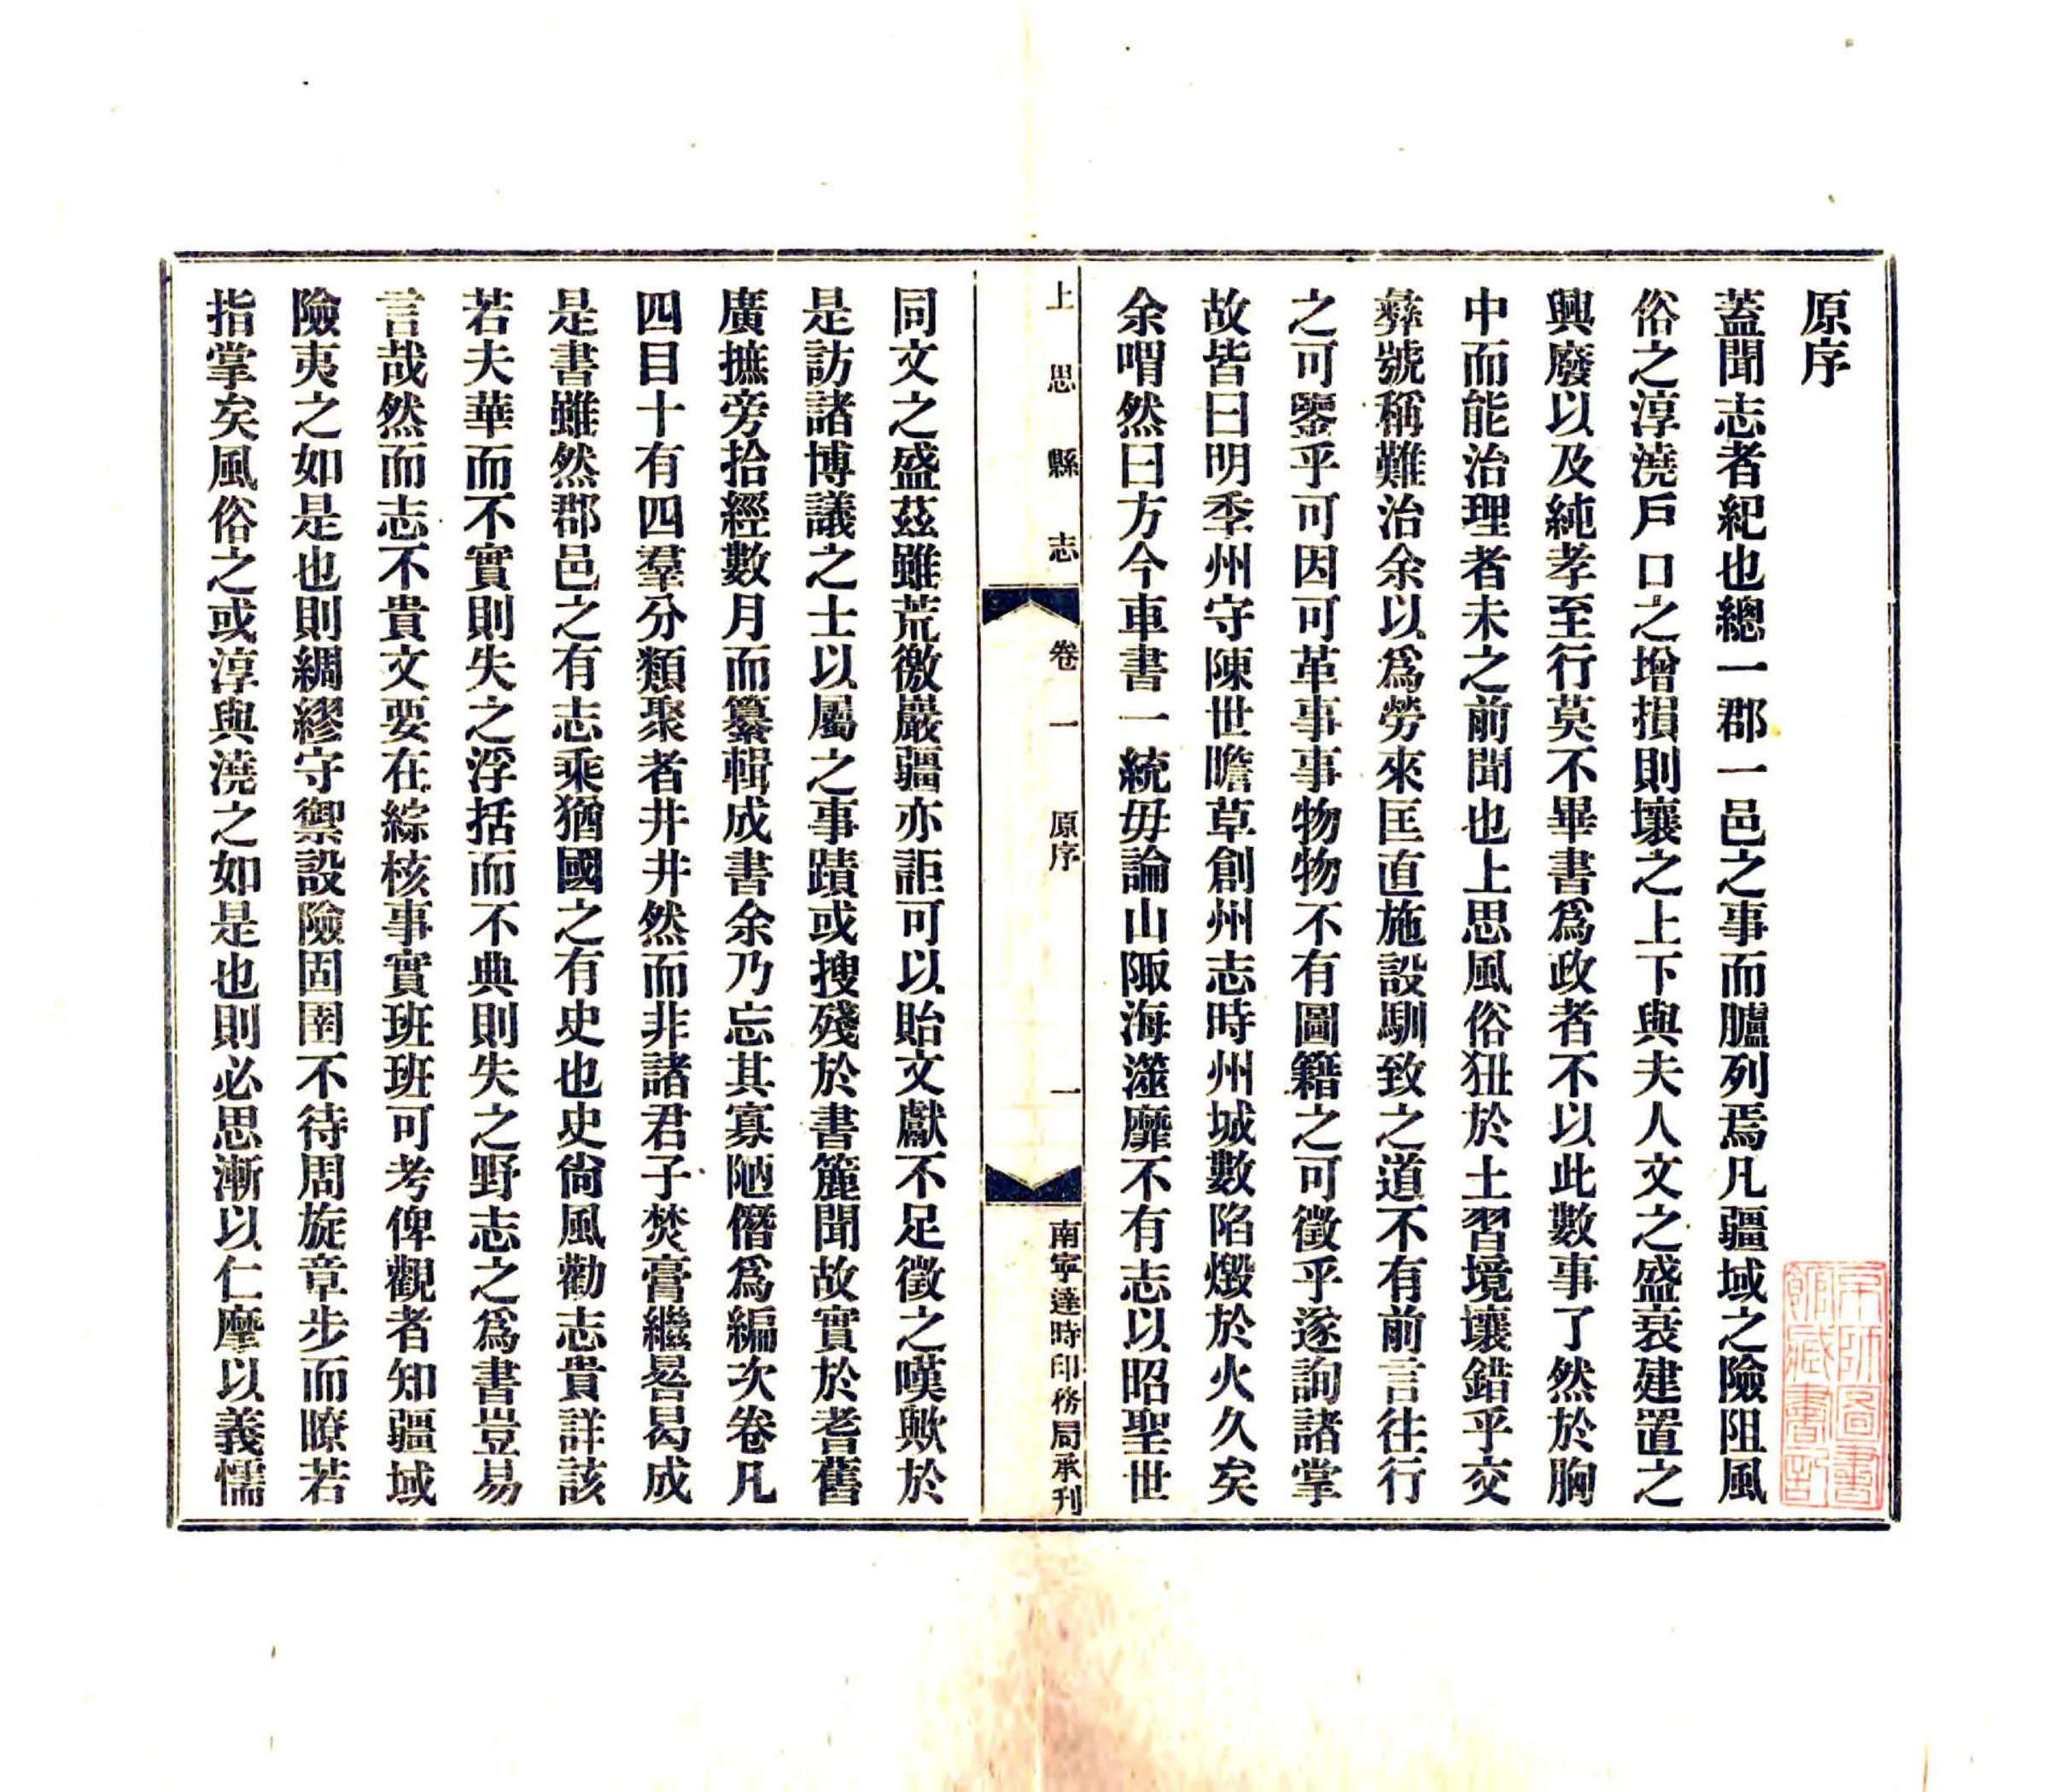 原序
蓋聞志者紀也總一郡一邑之事而臚列焉凡疆域之險阻風
俗之淳澆戶口之增損則壤之上下與夫人文之盛衰建置之
興廢以及純孝至行莫不畢書爲政者不以此數事了然於胸
中而能治理者未之前聞也上思風俗狃於土習境壤錯乎交
彝號稱難治余以爲勞來匡直施設馴致之道不有前言往行
之可鑒乎可因可革事事物物不有圖籍之可徵乎遂詢諸掌
故皆曰明季州守陳世瞻草創州志時州城數陷燬於火久矣
余喟然曰方今車書一統毋論山陬海澨靡不有志以昭聖世
上思縣志
卷一
原序
一
南寧達時印務局承刊
同文之盛茲雖荒徼巖疆亦詎可以貽文獻不足徵之嘆歟於
是訪諸博議之士以屬之事蹟或搜殘於書簏聞故實於耆舊
廣摭旁拾經數月而纂輯成書余乃忘其寡陋僭爲編次卷凡
四目十有四羣分類聚者井井然而非諸君子焚膏繼晷曷成
是書雖然郡邑之有志乘猶國之有史也史尙風勸志貴詳該
若夫華而不實則失之浮括而不典則失之野志之爲書豈易
言哉然而志不貴文要在綜核事實班班可考俾觀者知疆域
險夷之如是也則綢繆守禦設險固圉不待周旋章步而瞭若
指掌矣風俗之或淳與澆之如是也則必思漸以仁摩以義懦
京師圖書
館藏書記